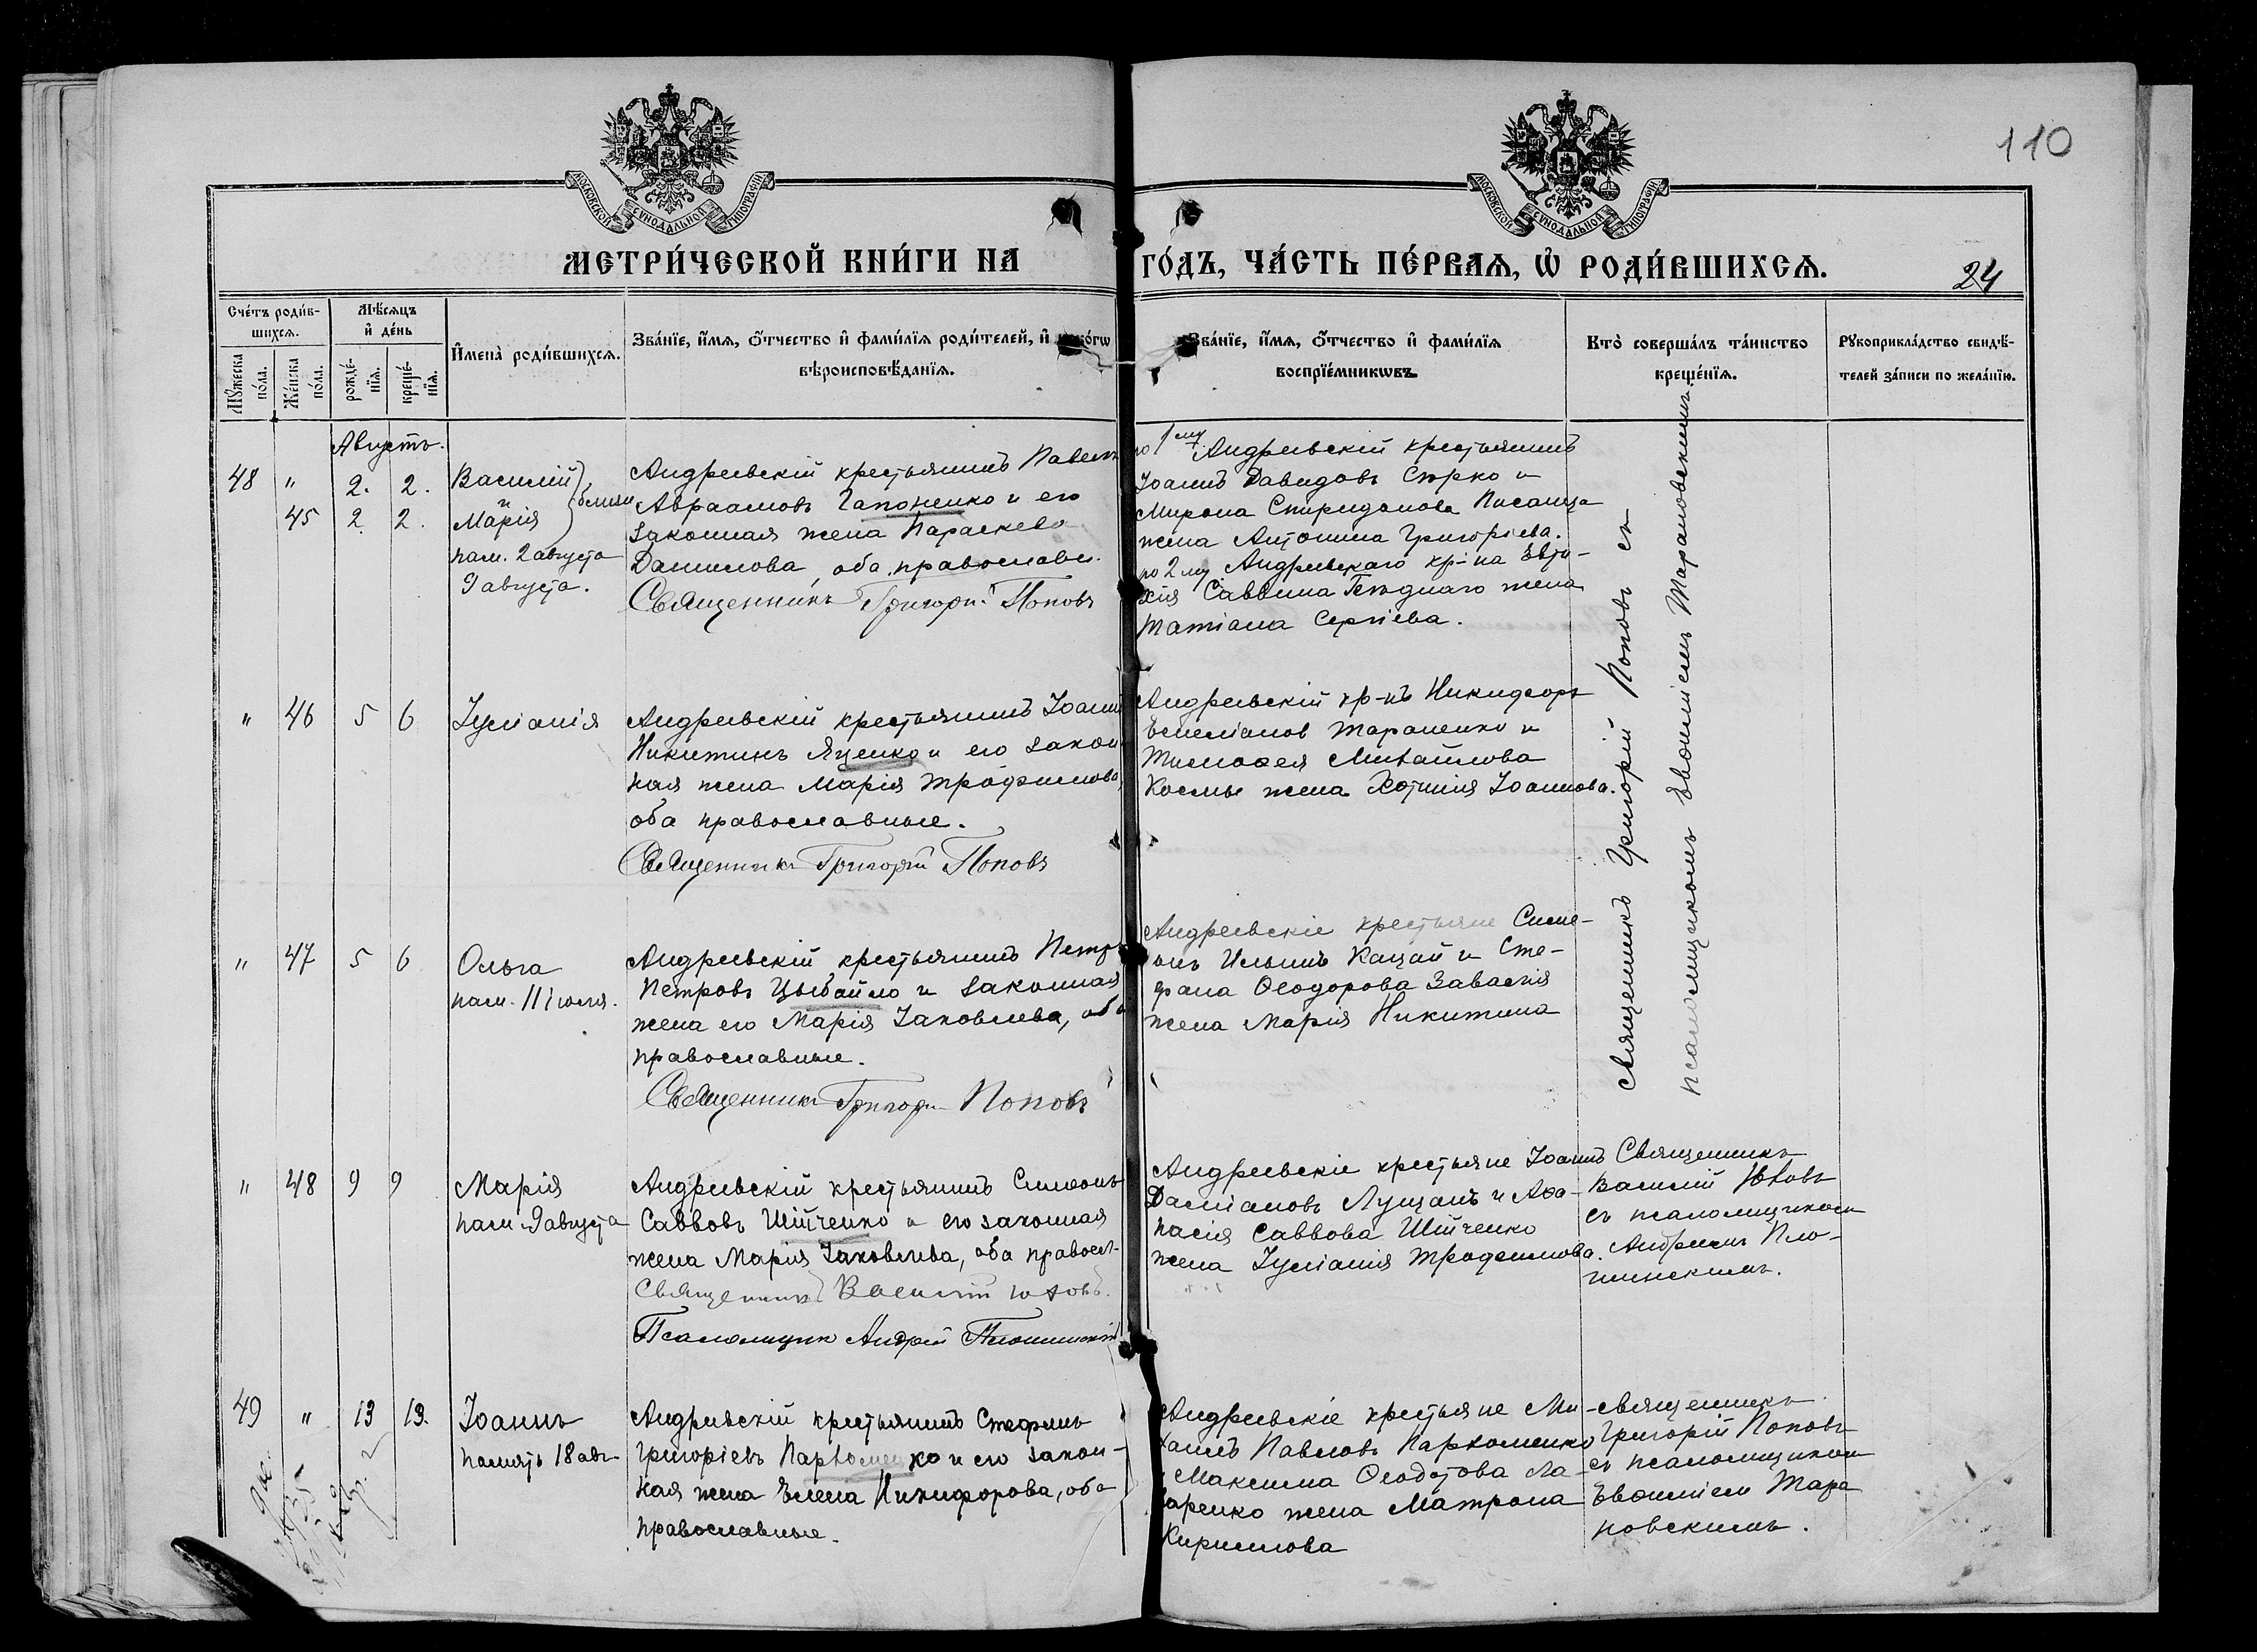 110
МОСКОВСКОЙ СУНОДАЛЬНОЙ ТИПОГРАФИИ
МОСКОВСКОЙ СУНОДАЛЬНОЙ ТИПОГРАФИИ
МЕТРИ́ЧЕСКОЙ КНИ́ГИ НА
ГО́ДЪ, ЧА́СТЬ ПЕ́РВАЯ, Ѡ РОДИ́ВШИХСЯ.
24
Сче́тъ роди́в-
шихся.
Мꙋ́жеска по́ла.
Же́нска по́ла.
Мѣ́сяцъ
и҆ де́нь
рожде́-
нїя.
креще́-
нїя.
И҆мена̀ роди́вшихся.
Зва́нїе, и҆́мя, ѻ҆́тчество и҆ фами́лїя роди́телей, и҆
вѣроисповѣ́данїя.
Зва́нїе, и҆́мя, ѻ҆́тчество и҆ фами́лїя
воспрїе́мникѡвъ.
Кто̀ соверша́лъ та́инство
креще́нїя.
Рꙋкоприкла́дство свидѣ́-
телей за́писи по жела́нїю.
Августъ.
48 " 2. 2. Василий
и
45 2. 2. Марія
пам. 2 августа
9 августа.
Андреевскій крестьянинъ Павелъ
Авраамовъ Гапоненко и его
законная жена Параскева
Данилова, оба православн.
Священникъ Григорій Поповъ
по 1му Андреевскій крестьянинъ
Іоаннъ Давидовъ Сирко и
Мирона Спиридонова Писанца
жена Антонина Григоріева.
по 2му Андреевскаго кр-на Евти-
хія Саввина жена
Татіана Сергіева.
Священникъ Григорій Поповъ съ
псаломщикомъ Евѳиміемъ Тарановскимъ
" 46 5 6 Іуліанія
Андреевскій крестьянинъ Іоаннъ
Никитинъ Яценко и его закон-
ная жена Марія Трофимова,
оба православные.
Священникъ Григорій Поповъ
Андреевскій кр-нъ Никифоръ
Емеліановъ Тараненко и
Тимоѳея Михайлова
Космы жена Хотинія Іоаннова.
" 47 5 6 Ольга
пам. 11 іюля.
Андреевскій крестьянинъ Петръ
Петровъ Цыбайло и законная
жена его Марія Іаковлева, оба
православные.
Священникъ Григорій Поповъ
Андреевскіе крестьяне Симе-
онъ Ильинъ Кацай и Сте-
фана Ѳеодорова
жена Марія Никитина
" 48 9 9 Марія
пам. 9 августа
Андреевскій крестьянинъ Симеонъ
Саввовъ Шійченко и его законная
жена Марія Іаковлева, оба правосл.
Священникъ Василій Юховъ.
Псаломщик Андрей Плошинскій
Андреевскіе крестьяне Іоаннъ
Даміановъ Лущанъ и Аѳа-
насія Саввова Шійченко
жена Іуліанія Трофимова.
Священникъ
Василій Юховъ
съ псаломщикомъ
Андреемъ Пло-
шинскимъ.
49 " 13 13. Іоаннъ
память 18 авг.
Андреевскій крестьянинъ Стефанъ
Григоріевъ Пархоменко и его закон-
ная жена Елена Никифорова, оба
православные.
Андреевскіе крестьяне Ми-
хаилъ Павловъ Пархоменко
Максима Ѳеодотова Ла-
заренко жена Матрона
Кириллова
священникъ
Григорій Поповъ
съ псаломщикомъ
Евѳиміем Тара
новскимъ.